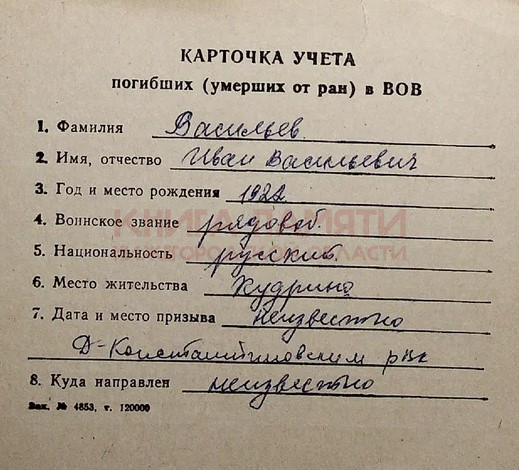 КАРТОЧКА УЧЕТА
погибших (умерших от ран) в ВОВ
1. Фамилия Васильев
2. Имя, отчество Иван Васильевич
3. Год и место рождения 1922
КНИГА ПАМЯТИ
4. Воинское звание рядовой.
НИЖЕГОРОДСКОЙ ОБЛАСТИ
5. Национальность русский
6. Место жительства Кудрино
7. Дата и место призыва неизвестно
Д-Константиновским рвк
8. Куда направлен неизвестно
Зак. № 4853, т. 120000